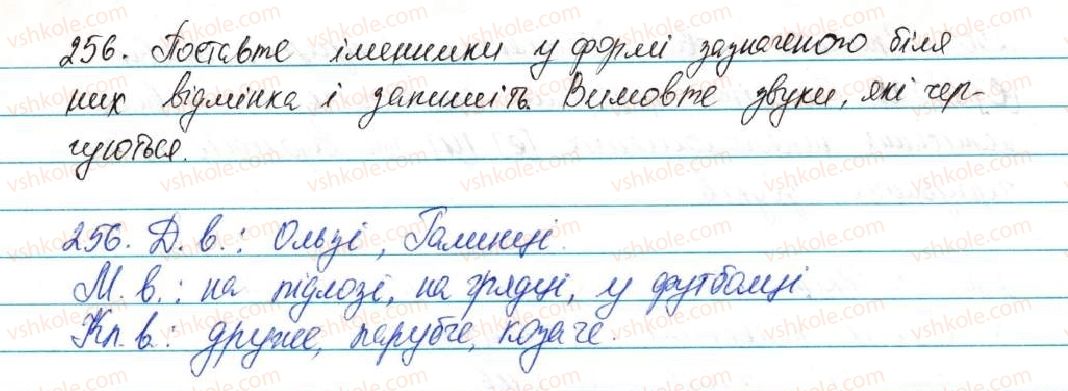 256. Поставте іменники у формі зазначеного біля
них відмінка і запишіть. Вимовте звуки, які чер-
гуються.
256. Д. в.: Ользі, Галинці.
М. в.: на підлозі, на грядці, у футболці.
Кл. в.: друже, парубче, козаче.